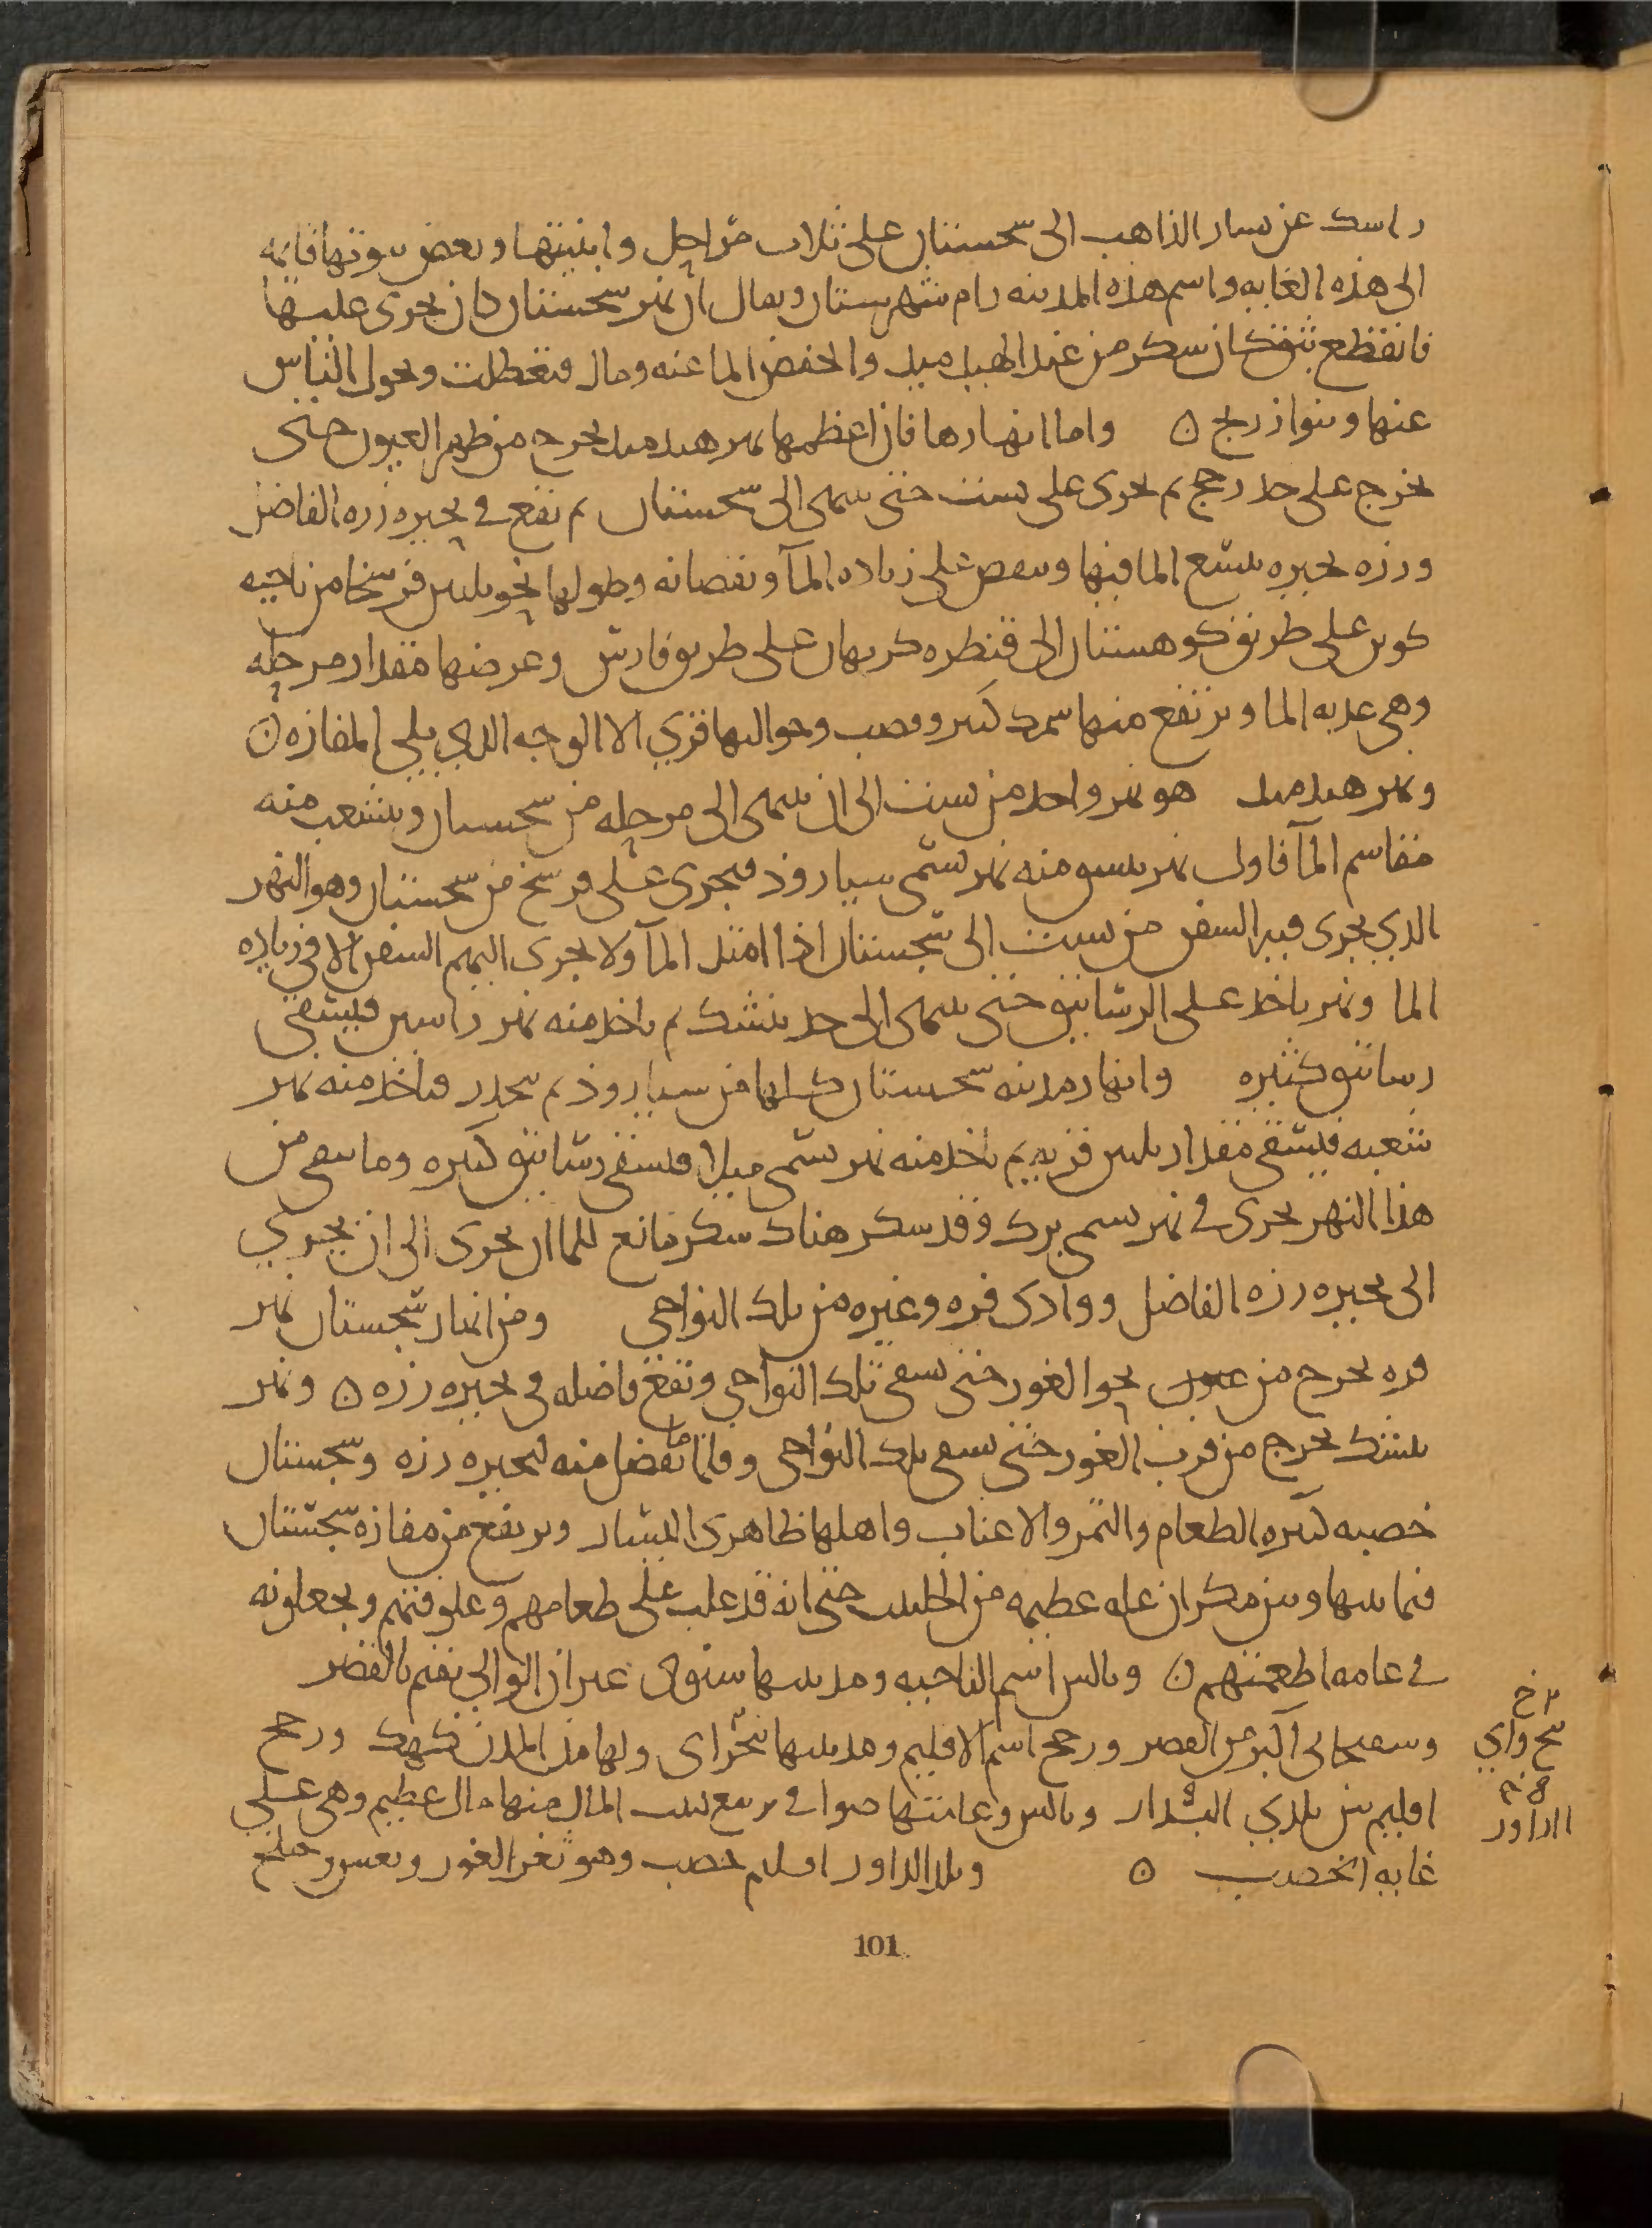 راسك عن يسار الذاهب الى سجستان على ثلاث مراحل وابنيتها وبعض بيوتها قايمه
الى هذه الغايه واسم هذه المدينه رام شهرستان ويقال ان نهر سجستان كان يجرى عليها
فانقطع بثق كان سكر من هيدميد وانخفض الما عنه ومال فتعطلت وتحول الناس
عنها وبنوا زرنج ۞ واما انهارها فان اعظمها نهر هيدميد يخرج من ظهر الغور حتى
يخرج على حد رخج ثم يجرى على بست حتى ينتهى الى سجستان ثم تقع فى بحيره زره الفاضل
وزره بحيره يتسع الما فيها وينقص على زياده المآ ونقصانه وطولها نحو ثلثين فرسخا من ناحيه
كرين على طريق كوهستان الى قنطره كرمان على طريق فارس وعرضها مقدار مرحله
وهى عذبه الما ويرتفع منها سمك كثير وقصب وحواليها قرى الا الوجه الذي يلي المفازه ۞
ونهر هيدميد هو نهر واحد من بست الى ان ينتهى الى مرحله من سجستان ويتشعب منه
مقاسم المآ فاول نهر ينبثق منه نهر يسمى سيارود فيجرى على فرسخ من سجستان وهو النهر
الذي يجرى فيه السفن من بست الى سجستان اذا امتد المآ ولا يجرى اليهم السفن الا فى زياده
الما ونهر ياخذ على الرساتيق حتى ينتهى الى حد نيشك ثم ياخذ منه نهر فيسقى
رساتيق كثيره وانهار مدينه سجستان كلها من سيارود ثم ينحدر فياخذ منه نهر
شعبه فيسقى مقدار ثلثين قريه ثم ياخذ منه نهر يسمى ميلا فيسقى رساتيق كثيره وما يبقى من
هذا النهر يجرى فى نهر يسمى بزك وقد سكر هناك سكر مانع للما ان يجرى الى ان يجري
الى بحيره زره الفاضل ووادى فره وغيره من تلك النواحى ومن انهار سجستان نهر
فره يخرج من نحو الغور حتى يسقى تلك النواحي وتقع فاضله فى بحيره زره ۞ ونهر
نيشك يخرج من قرب الغور حتى يسقى تلك النواحى وقلما تفضل منه لبحيره زره وسجستان
خصبه كثيره الطعام والتمر والاعناب واهلها ظاهرى اليسار ويرتفع من مفازه سجستان
فيما بينها وبين مكران غله عظيمه من الحلتيت حتى انه قد غلب على طعامهم ويجعلونه
فى عامه اطعمتهم ۞ وبالس اسم الناحيه ومدينتها سيوى غير ان الوالي يقيم بالقصر
وسفنجاى اكبر من القصر ورخج اسم الاقليم ومدينتها بنجواى ولها من المدن كهك ورخج
اقليم بين بلدي الداور وبالس وعامتها صوافى يرتفع لبيت المال منها مال عظيم وهى على
غايه الخصب ۞ وبلد الداور اقليم خصب وهو ثغر الغور وبغنين وخلج
الداور
101